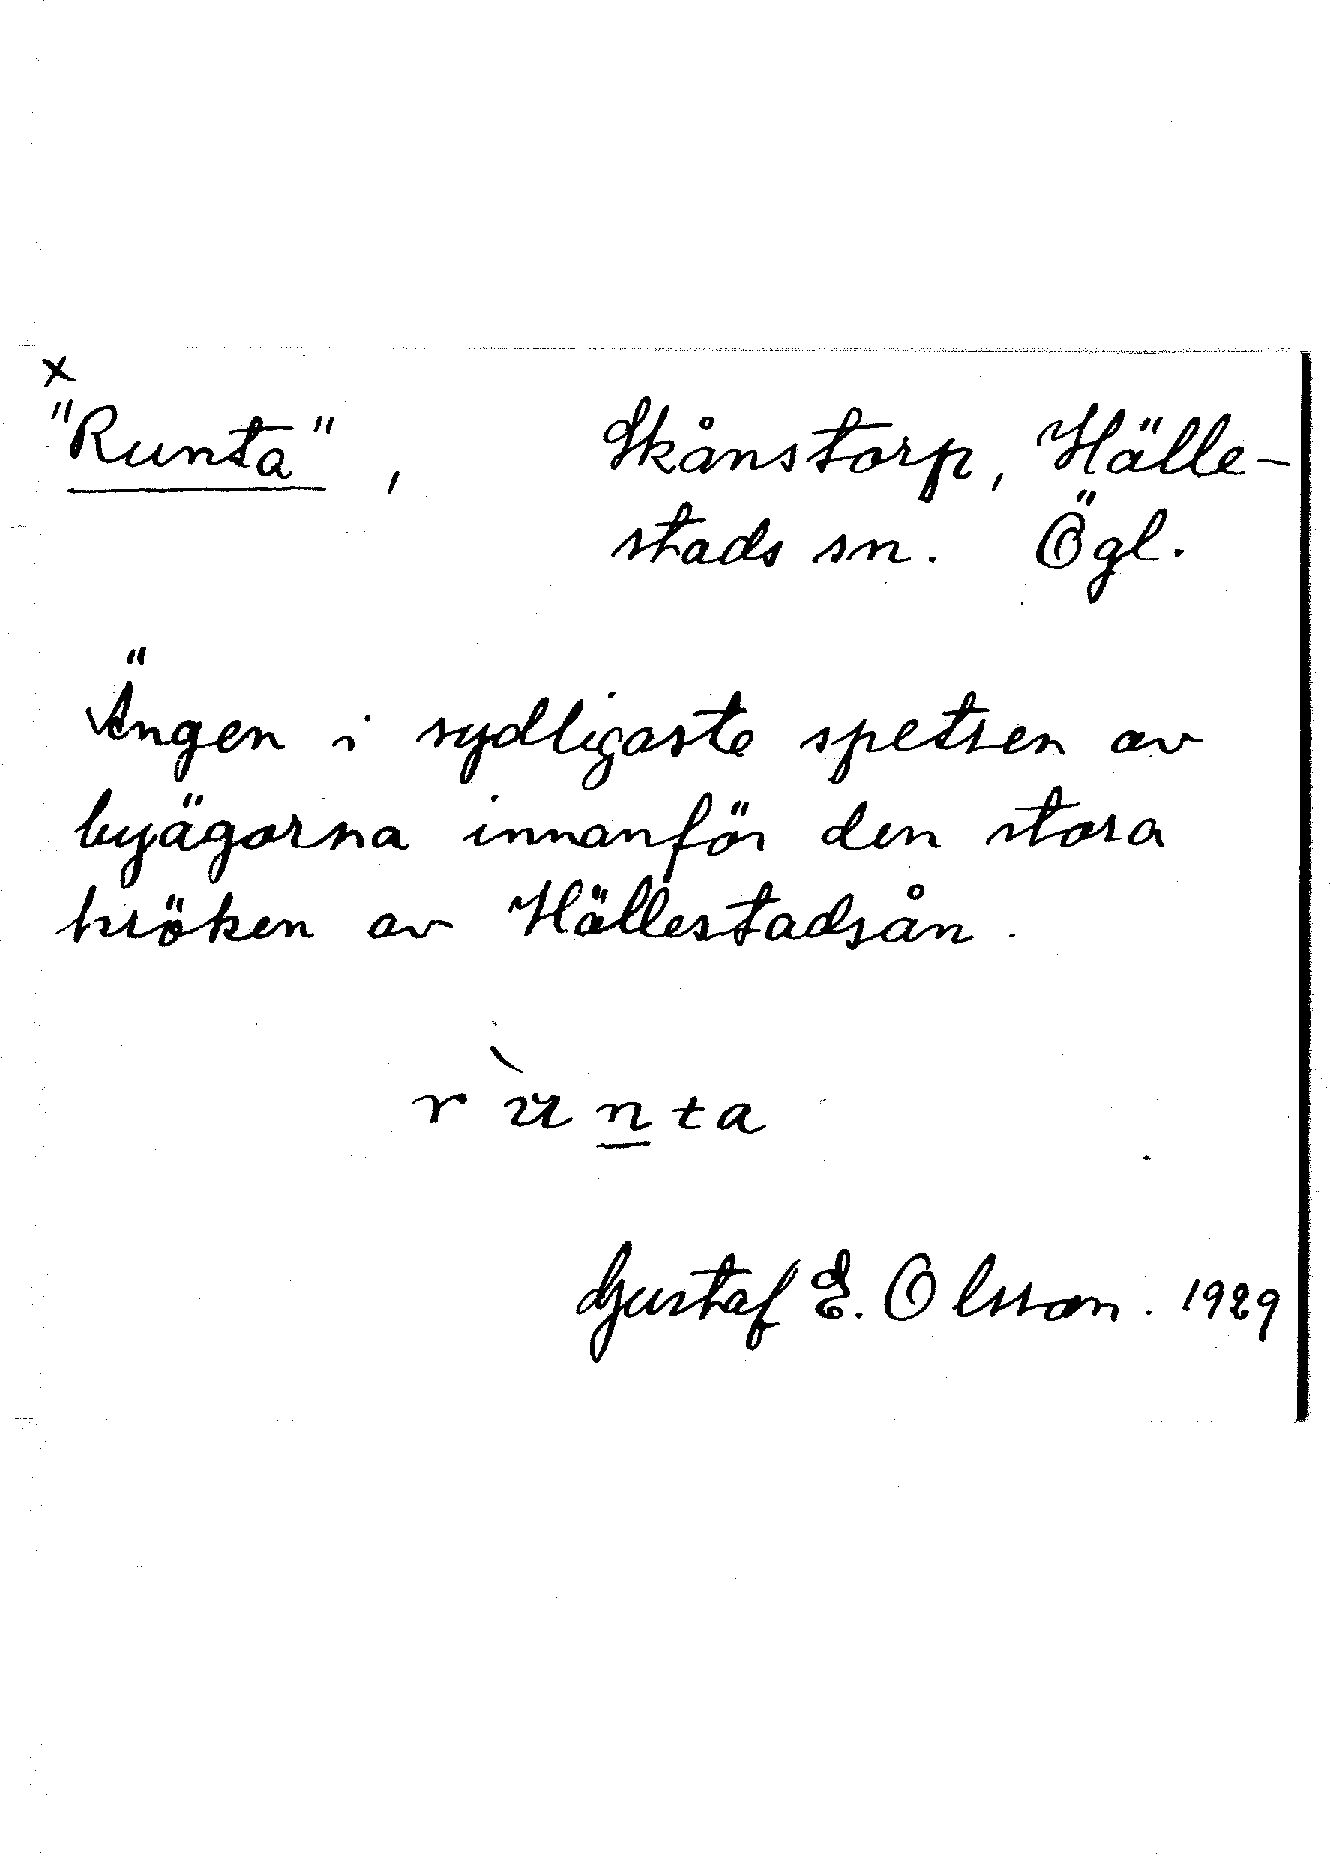 x
"Runta", Skånstorp, Hälle-
stads sn. Ögl.
Ängen i sydligaste spetsen av
byägorna innanför den stora
kröken av Hällestadsån.
rùnta
Gustaf E. Olsson. 1929